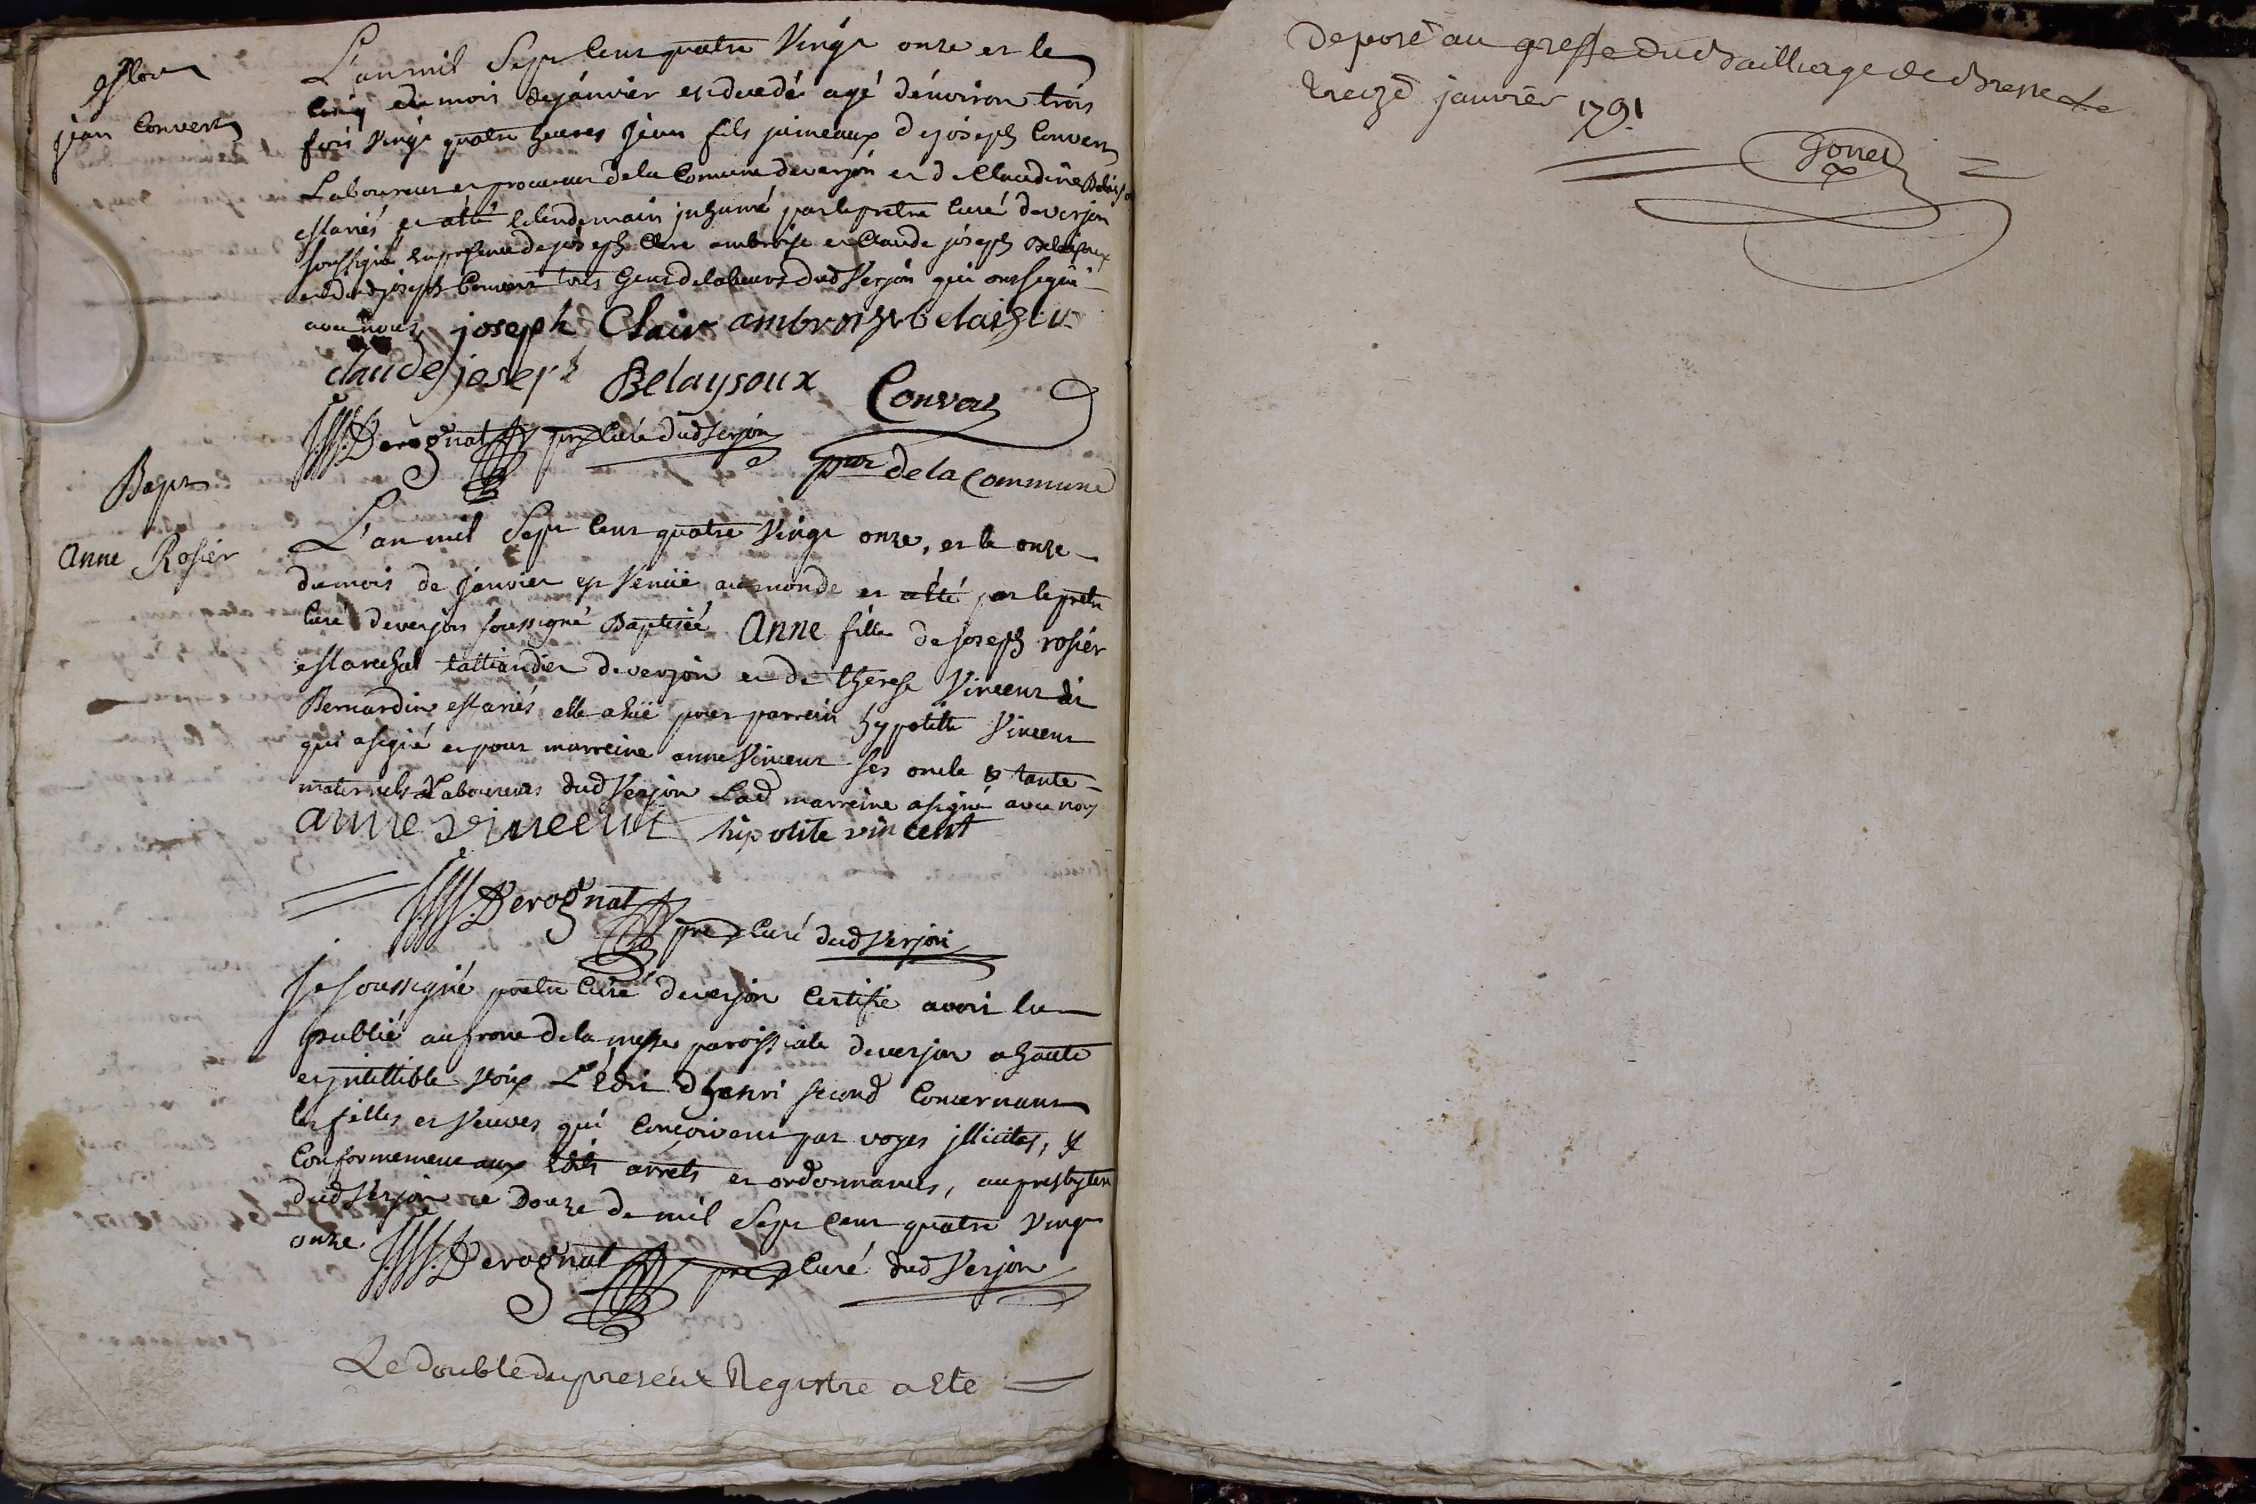 Mort
jean Convert
L'an mil Sept Cent quatre Vingt onze et le
Cinq du mois de janvier est decedé agé d'environ trois
fois vingt quatre heures jean fils jumeaux de joseph Convert
Laboureur et procureur de la Comune de verjon et de Claudine
Mariés et a été le lendemain inhumé par le pretre curé de verjon
soussigné en presence de joseph Clere ambroise et Claude joseph Belaisoux
et dud joseph Convert tous gens de labeurs dud Verjon qui ont signé
avec nous joseph Clair ambroise belaizeu
claude joseph Belaysoux Convert
Derognat pre Curé dud Verjon
pur de la Commune
Bapt
anne Rosier
L'an mil Sept Cent quatre Vingt onze, et le onze
du mois de janvier est venüe au monde et a été par le pretre
Curé de verjon soussigné Baptisée anne fille de joseph rosier
Marechal tailliandier de verjon et de therese Vincent dit
Bernardin Mariés elle a eüe pour parrein hypolitte Vincent
qui a signé et pour marreine anne Vincent ses oncle & tante
maternels Laboureurs dud Verjon Lad marreine a signé avec nous
anne vincent hipolite vincent
Derognat pre Curé dud Verjon
Je soussigné pretre Curé de verjon Certifie avoir lu
publié au prone de la messe paroissiale de verjon a haute
et intellible voix L'Edit d'henri second Concernant
les filles et Veuves qui Conçoivent par voyes jllicites, &
Conformement aux Edits arrets et ordonnances, au presbytere
dud Verjon ce Douze de mil Sept Cent quatre Vingt
onze Derognat pre Curé dud Verjon
Le double du present Registre a Eté
deposé au greffe du Bailliage de Bresse Le
treize janvier 1791